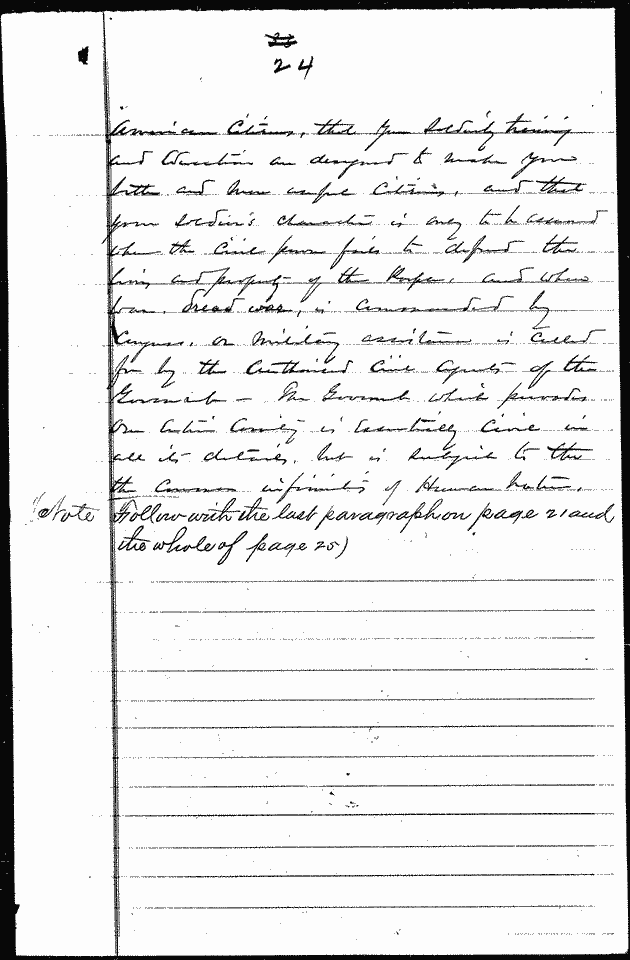 24
American Citizens, that your Soldierly training
and Education are designed to make you
better and more useful Citizens, and that
your soldier's character is only to be assumed
when the Civil power fails to defend the
lives and property of the People, and when
war, dread war, is commanded by
Congress, or Military assistance is called
for by the Authorised Civil Agents of the
Government — The Government which pervades
Our Entire Country is Essentially Civil in
all its details, but is subject to the
the Common infirmities of Human Nature.
(Note Follow with the last paragraph on page 21 and
the whole of page 25)